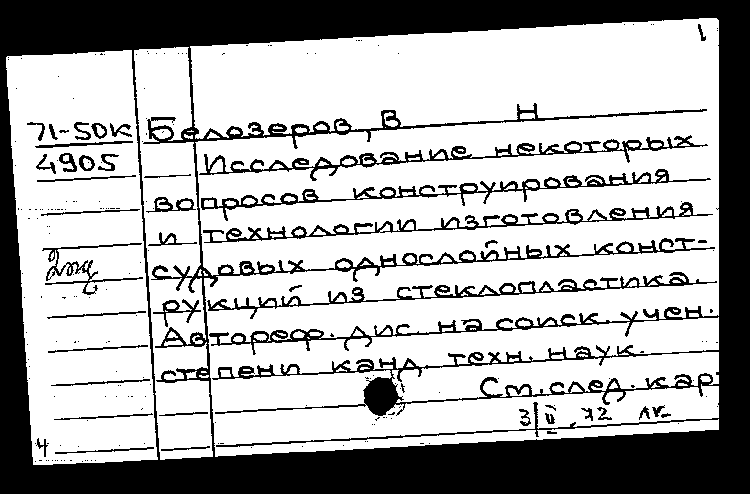 1
71-50К Белозеров, В Н
4905 Исследование некоторых
вопросов конструирования
и технологии изготовления
судовых однослойных конст-
рукций из стеклопластика.
Автореф. дис. на соиск. учен.
степени канд. техн. наук.
См. след. кар
3/II.72
4